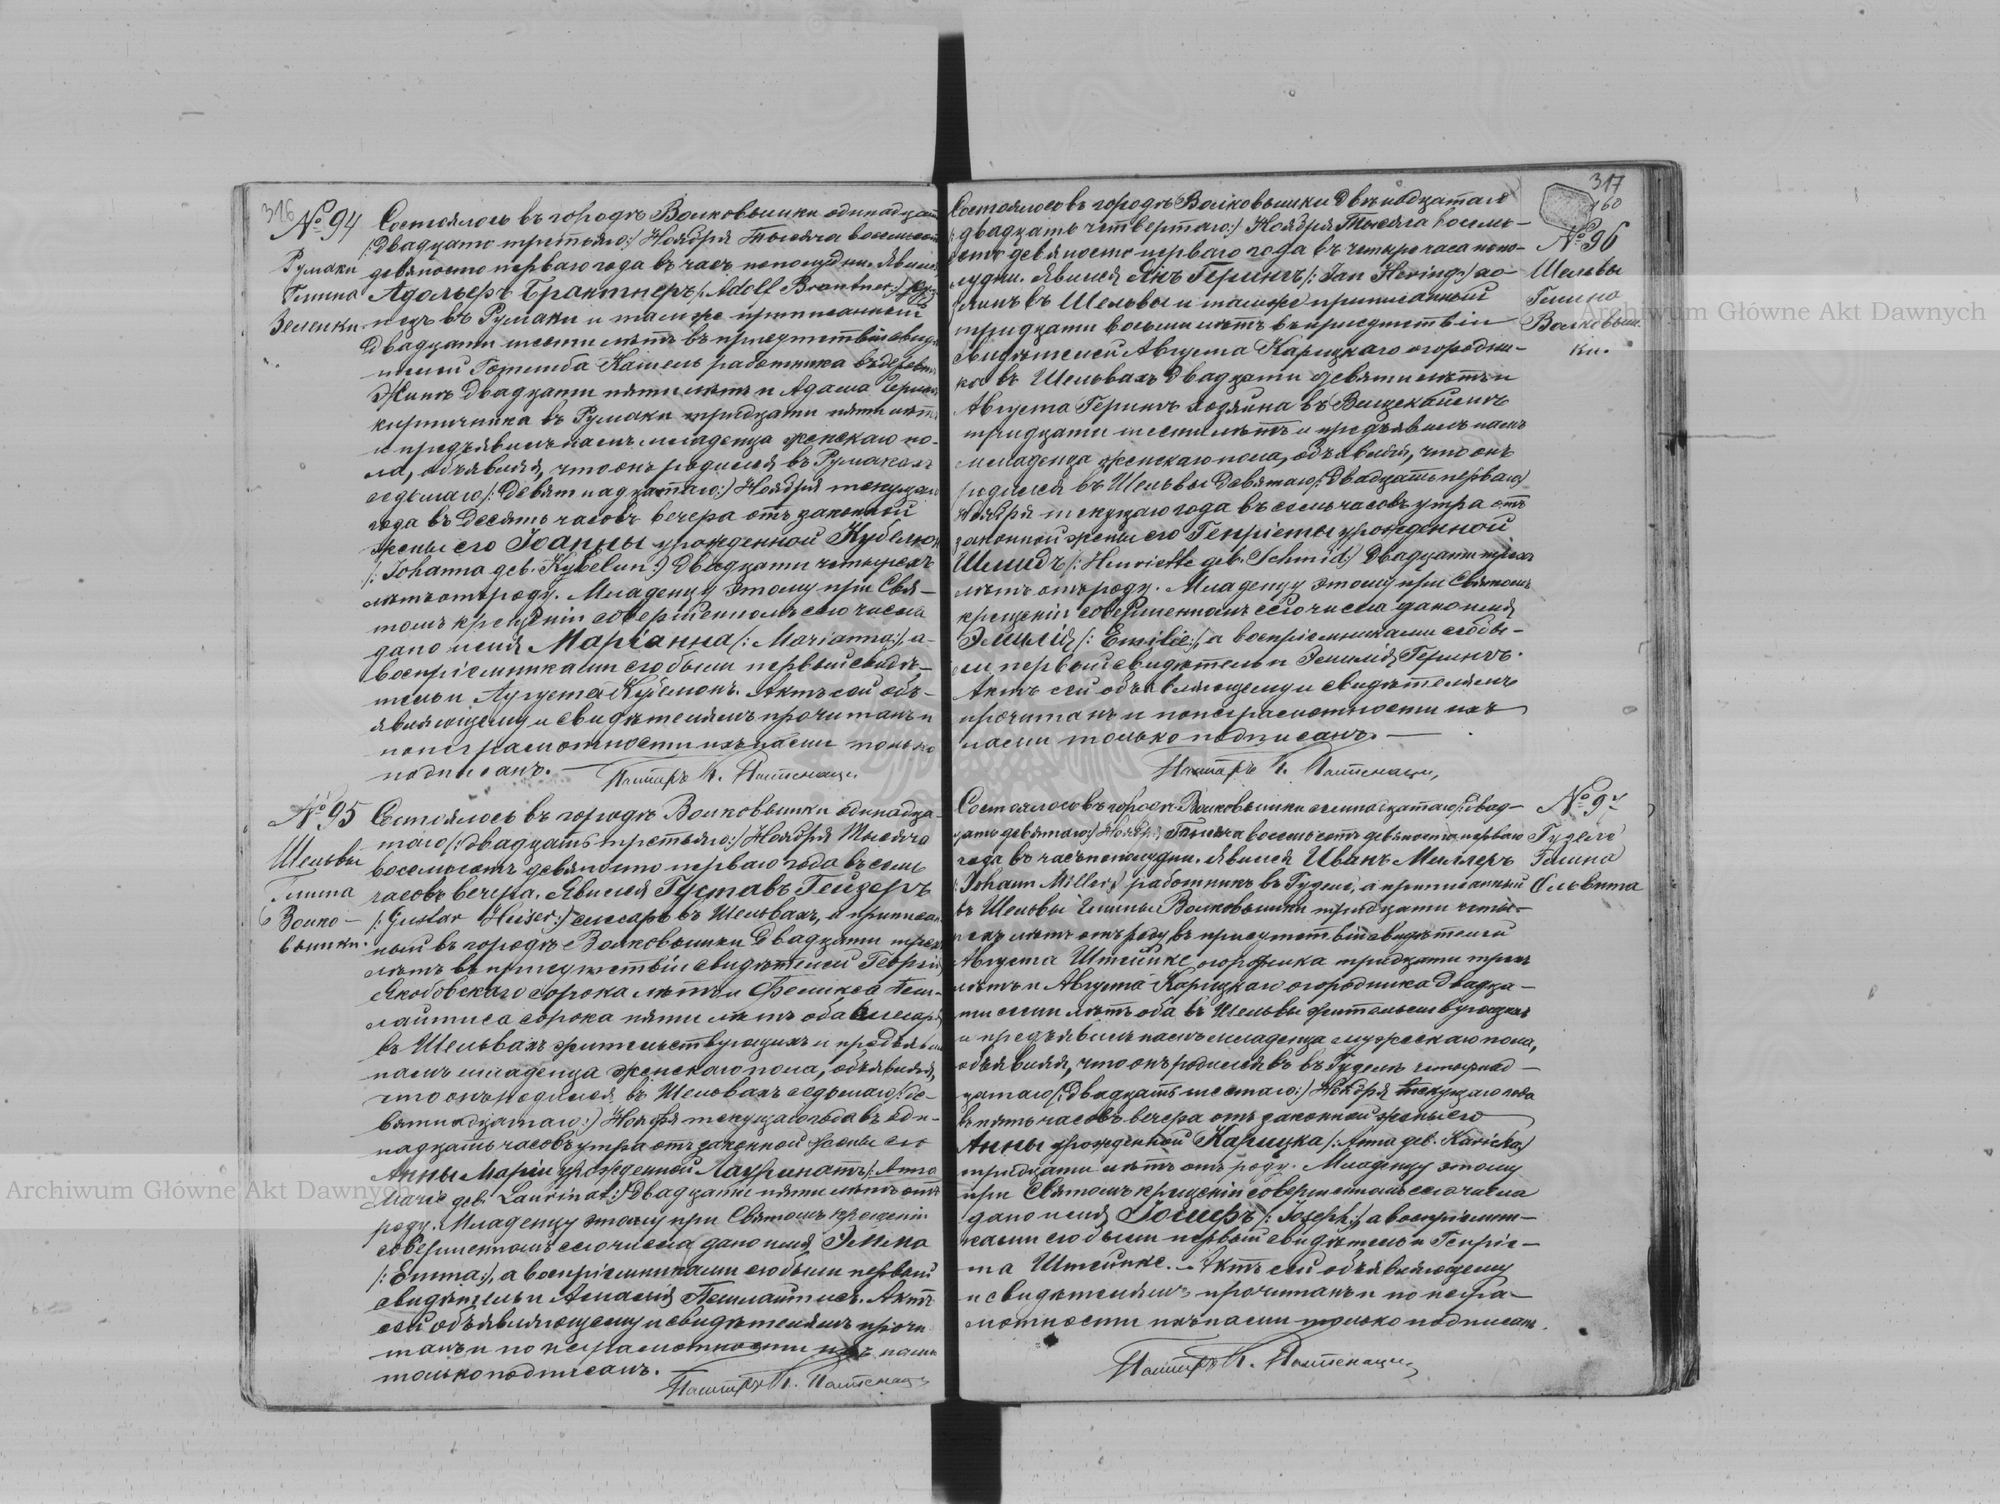 316
№ 94
Румаки
Гмина
Зеленки
Состоялось въ городѣ Волковышки одинадцат
/:Двадцать третьяго:/ Ноября Тысяча восемьсотъ
девяносто перваго года въ часъ пополудни. Явился
Адольфъ Брантнеръ /:Adolf Brantner:/
въ Румаки и тамже приписанный
Двадцати шести лѣтъ въ присутствіи свидѣ
телей Готлиба Кашель работника
Двадцати пяти лѣтъ и Адама
кирпичника въ Румаки тридцати пяти лѣтъ
и предъявилъ намъ младенца женскаго по-
ла, объявляя, что онъ родился въ Румакахъ
седьмаго /:Девятнадцатаго:/ Ноября текущаго
года въ Десять часовъ вечера отъ законной
жены его Іоанны урожденной Кубелюн
/:Johanna geb. Kubelun:/ Двадцати четырехъ
лѣтъ отъ роду. Младенцу этому при Свя-
томъ крещеніи совершенномъ сего числа
дано имя Маріанна /:Marianna:/, а
воспріемниками его были первый свидѣ-
тель и Августа Кубелюнъ. Актъ сей объ-
являющему и свидѣтелямъ прочитанъ и
по неграмотности ихъ нами только
подписанъ.
Пасторъ
№ 95
Шельвы
Гмина
Волко-
вышки.
Состоялось въ городѣ Волковышки одинадца-
таго /:двадцать третьяго:/ Ноября Тысяча
восемьсотъ девяносто перваго года въ семь
часовъ вечера. Явился Густавъ Гейзеръ
/:Gustav Heiser:/ слесарь въ Шельвахъ, и приписан
ный въ городѣ Волковышки Двадцати трехъ
лѣтъ въ присутствіи свидѣтелей Георгія
Якобовскаго сорока лѣтъ и Феликса
сорока пяти лѣтъ оба слесаря
въ Шельвахъ жительствующихъ и предъявилъ
намъ младенца женскаго пола, объявляя,
что онъ родился въ Шельвахъ седьмаго /:де-
вятнадцатаго:/ Ноября текущаго года въ оди-
надцать часовъ утра отъ законной жены его
Анны Маріи урожденной Лауринатъ /:Anna
Marie geb. Laurinat:/ двадцати пяти лѣтъ отъ
роду. Младенцу этому при Святомъ крещеніи
совершенномъ сего числа дано имя Эмма
/:Emma:/, а воспріемниками его были первый
свидѣтель и Амалія Актъ
сей объявляющему и свидѣтелямъ прочи
танъ и по неграмотности ихъ нами
только подписанъ.
Пасторъ
317
160
№ 96
Шельвы
Гмина
Волковыш-
ки.
Состоялось въ городѣ Волковышки Двѣнадцатаго
/:двадцать четвертаго:/ Ноября Тысяча восемь-
сотъ девяносто перваго года въ четыре часа попо-
лудни. Явился Янъ Герингъ /:Jan Hering:/ хо-
зяинъ въ Шельвы и тамже приписанный
тридцати восьми лѣтъ въ присутствіи
свидѣтелей Августа Карицкаго огородни-
ка въ Шельвахъ Двадцати девяти лѣтъ и
Августа Герингъ хозяина въ
тридцати шести лѣтъ и предъявилъ намъ
младенца женскаго пола, объявляя, что онъ
родился въ Шельвы Девятаго /:Двадцать перваго:/
Ноября текущаго года въ семь часовъ утра отъ
законной жены его Генріеты урожденной
Шмидъ /:Henriette geb. Schmid:/ Двадцати трехъ
лѣтъ отъ роду. Младенцу этому при Святомъ
крещеніи совершенномъ сего числа дано имя
Эмилія /:Emilie:/, а воспріемниками его бы-
ли первый свидѣтель и Эмилія Герингъ.
Актъ сей объявляющему и свидѣтелямъ
прочитанъ и по неграмотности ихъ
нами только подписанъ.
Пасторъ
№ 97
Гуделе
Гмина
Ольвита
Состоялось въ городѣ Волковышки семнадцатаго /:двад-
цать девятаго:/ Ноября Тысяча восемьсотъ девяносто перваго
года въ часъ пополудни. Явился Иванъ Миллеръ
/:Johann Miller:/ работникъ въ Гуделе, а приписанный
въ Шельвы Гмины Волковышки тридцати четы-
рехъ лѣтъ отъ роду въ присутствіи свидѣтелей
Августа Штейнке огородника тридцати трехъ
лѣтъ и Августа Карицкаго огородника двадца-
ти семи лѣтъ оба въ Шельвы жительствующихъ
и предъявилъ намъ младенца мужескаго пола,
объявляя, что онъ родился въ Гуделе четырнад-
цатаго /:Двадцать шестаго:/ Ноября текущаго года
въ пять часовъ вечера отъ законной жены его
Анны урожденной Карицка /:Anna geb. Karicka:/
тридцати лѣтъ отъ роду. Младенцу этому
при Святомъ крещеніи совершенномъ сего числа
дано имя Іосифъ /:Joseph:/, а воспріемни-
ками его были первый свидѣтель и Генріе-
та Штейнке. Актъ сей объявляющему
и свидѣтелямъ прочитанъ и по негра-
мотности ихъ нами только подписанъ.
Пасторъ
Archiwum Główne Akt Dawnych
Archiwum Główne Akt Dawnych